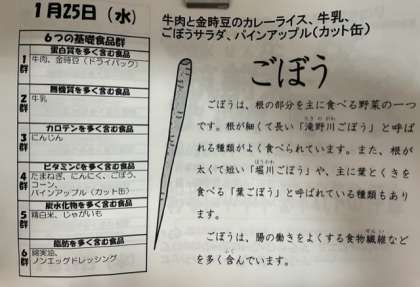 1月25日（水）
牛肉と金時豆のカレーライス、牛乳、
ごぼうサラダ、パインアップル（カット缶）
6つの基礎食品群
1群
蛋白質を多く含む食品
牛肉、金時豆（ドライパック）
2群
無機質を多く含む食品
牛乳
3群
カロテンを多く含む食品
にんじん
4群
ビタミンCを多く含む食品
たまねぎ、にんにく、ごぼう、
コーン、
パインアップル（カット缶）
5群
炭水化物を多く含む食品
精白米、じゃがいも
6群
脂肪を多く含む食品
綿実油、
ノンエッグドレッシング
ごぼう
ごぼうは、根の部分を主に食べる野菜の一つ
です。根が細くて長い「滝野川ごぼう」と呼ば
れる種類がよく食べられています。また、根が
太くて短い「堀川ごぼう」や、主に葉とくきを
食べる「葉ごぼう」と呼ばれている種類もあり
ます。
ごぼうは、腸の働きをよくする食物繊維など
を多く含んでいます。